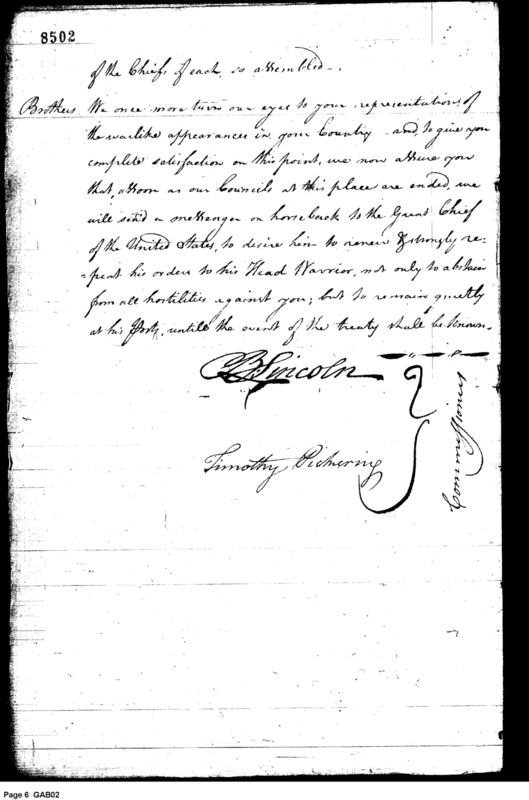 8502
of the Chiefs of each, so assembled—.
Brothers. We once more turn our eyes to your representations of
the warlike appearances in your Country – and, to give you
complete satisfaction on this point, we now assure you
that, assoon as our Councils at this place are ended, we
will send a messenger on horseback to the Great Chief
of the United States, to desire him to renew & strongly re-
-peat his orders to his Head Warrior, not only to abstain
from all hostilities against you; but to remain quietly
at his Posts, untill the event of the treaty shall be known—
B Lincoln
Timothy Pickering
Commissioners
Page 6 GAB02